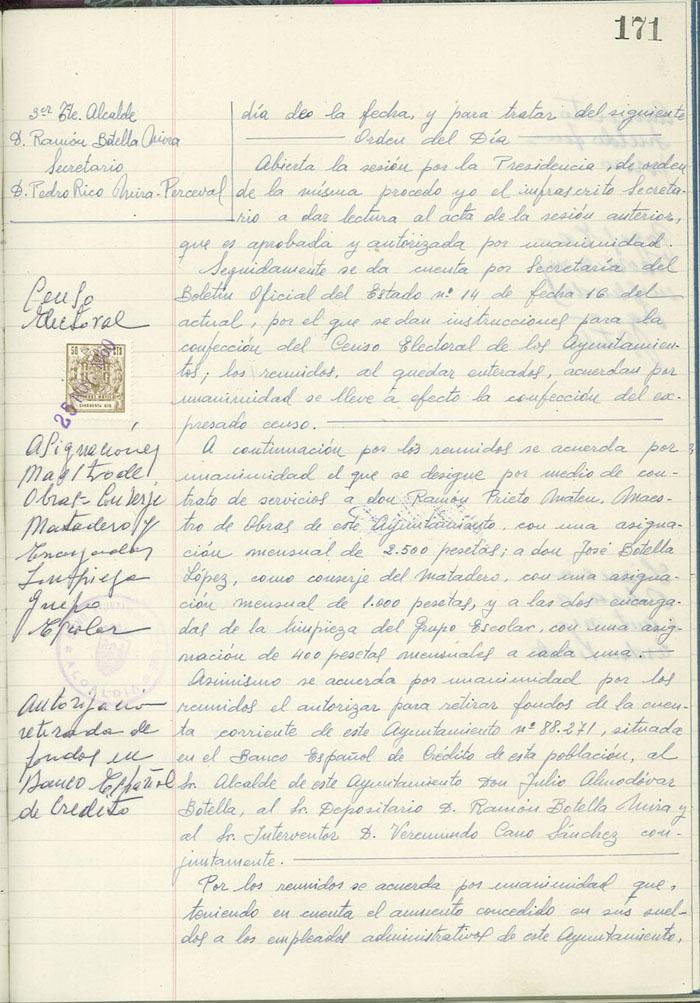 171
3er Tte. Alcalde
D. Ramón Botella Mira
Secretario
D. Pedro Rico Mira-Perceval
día de la fecha, y para tratar del siguiente
Orden del Día
Abierta la sesión por la Presidencia, de orden
de la misma procedo yo el infrascrito Secreta-
rio a dar lectura al acta de la sesión anterior,
que es aprobada y autorizada por unanimidad.
Censo
Electoral
Seguidamente se da cuenta por Secretaría del
Boletín Oficial del Estado nº 14 de fecha 16 del
actual, por el que se dan instrucciones para la
confección del Censo Electoral de los Ayuntamien-
tos; los reunidos, al quedar enterados, acuerdan por
unanimidad se lleve á efecto la confección del ex-
presado censo.
50 CTS
25
Asignaciones
Magtro de
Obras-Conserje
Matadero y
Encargadas
Limpieza
Grupo
Escolar
A continuación por los reunidos se acuerda por
unanimidad el que se designe por medio de con-
trato de servicios a don Ramón Prieto Mateu, Maes-
tro de Obras de este Ayuntamiento, con una asigna-
ción mensual de 2.500 pesetas; a don José Botella
López, como conserje del Matadero, con una asigna-
ción mensual de 1.000 pesetas, y a las dos encarga-
das de la limpieza del Grupo Escolar, con una asig-
nación de 400 pesetas mensuales a cada una.
ALCALDIA
Autorizando
retirada de
fondos en
Banco Español
de Crédito
Asimismo se acuerda por unanimidad por los
reunidos el autorizar para retirar fondos de la cuen-
ta corriente de este Ayuntamiento nº 88.271, situada
en el Banco Español de Crédito de esta población, al
Sr. Alcalde de este Ayuntamiento Don Julio Almodóvar
Botella, al Sr. Depositario D. Ramón Botella Mira y
al Sr. Interventor D. Veremundo Cano Sánchez con-
juntamente.
Por los reunidos se acuerda por unanimidad que,
teniendo en cuenta el aumento concedido en sus suel-
dos a los empleados administrativos de este Ayuntamiento,